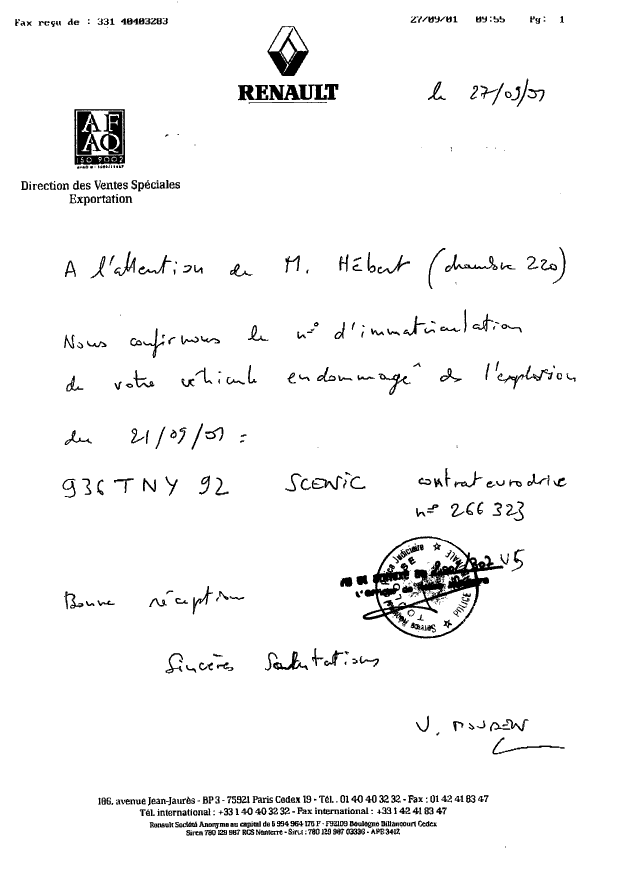 Fax reçu de : 331 40403283 27/09/01 09:55 Pg: 1
RENAULT
le 27/09/01
AFAQ
ISO 9002
Direction des Ventes Spéciales
Exportation
A l'attention de M. Hébert (chambre 220)
Nous confirmons le n° d'immatriculation
de votre véhicule endommagé de l'explosion
du 21/09/01 =
936 TNY 92 SCENIC contrat eurodrive
n° 266 323
Judiciaire
TOULOUSE
POLICE
Service Régional
Bonne réception
Sincères Salutations
186, avenue Jean-Jaurès - BP 3 - 75921 Paris Cedex 19 - Tél. : 01 40 40 32 32 - Fax : 01 42 41 83 47
Tél. international : +33 1 40 40 32 32 - Fax international : +33 1 42 41 83 47
Renault Société Anonyme au capital de 5 994 964 175 F - F92109 Boulogne Billancourt Cedex
Siren 780 129 987 RCS Nanterre - Siret : 780 129 987 03336 - APE 341Z